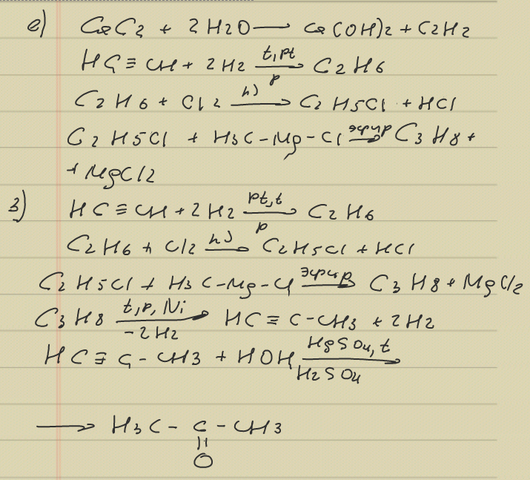 е) CaC2 + 2H2O → Ca(OH)2 + C2H2
HC≡CH + 2H2 t, pt → p C2H6
C2H6 + Cl2 hν → C2H5Cl + HCl
C2H5Cl + H3C-Mg-Cl эфир → C3H8 +
+ MgCl2
з) HC≡CH + 2H2 pt, t → p C2H6
C2H6 + Cl2 hν → C2H5Cl + HCl
C2H5Cl + H3C-Mg-Cl эфир → C3H8 + MgCl2
C3H8 t, p, Ni → -2H2 HC≡C-CH3 + 2H2
HC≡C-CH3 + HOH HgSO4, t → H2SO4
→ H3C-C-CH3
||
O